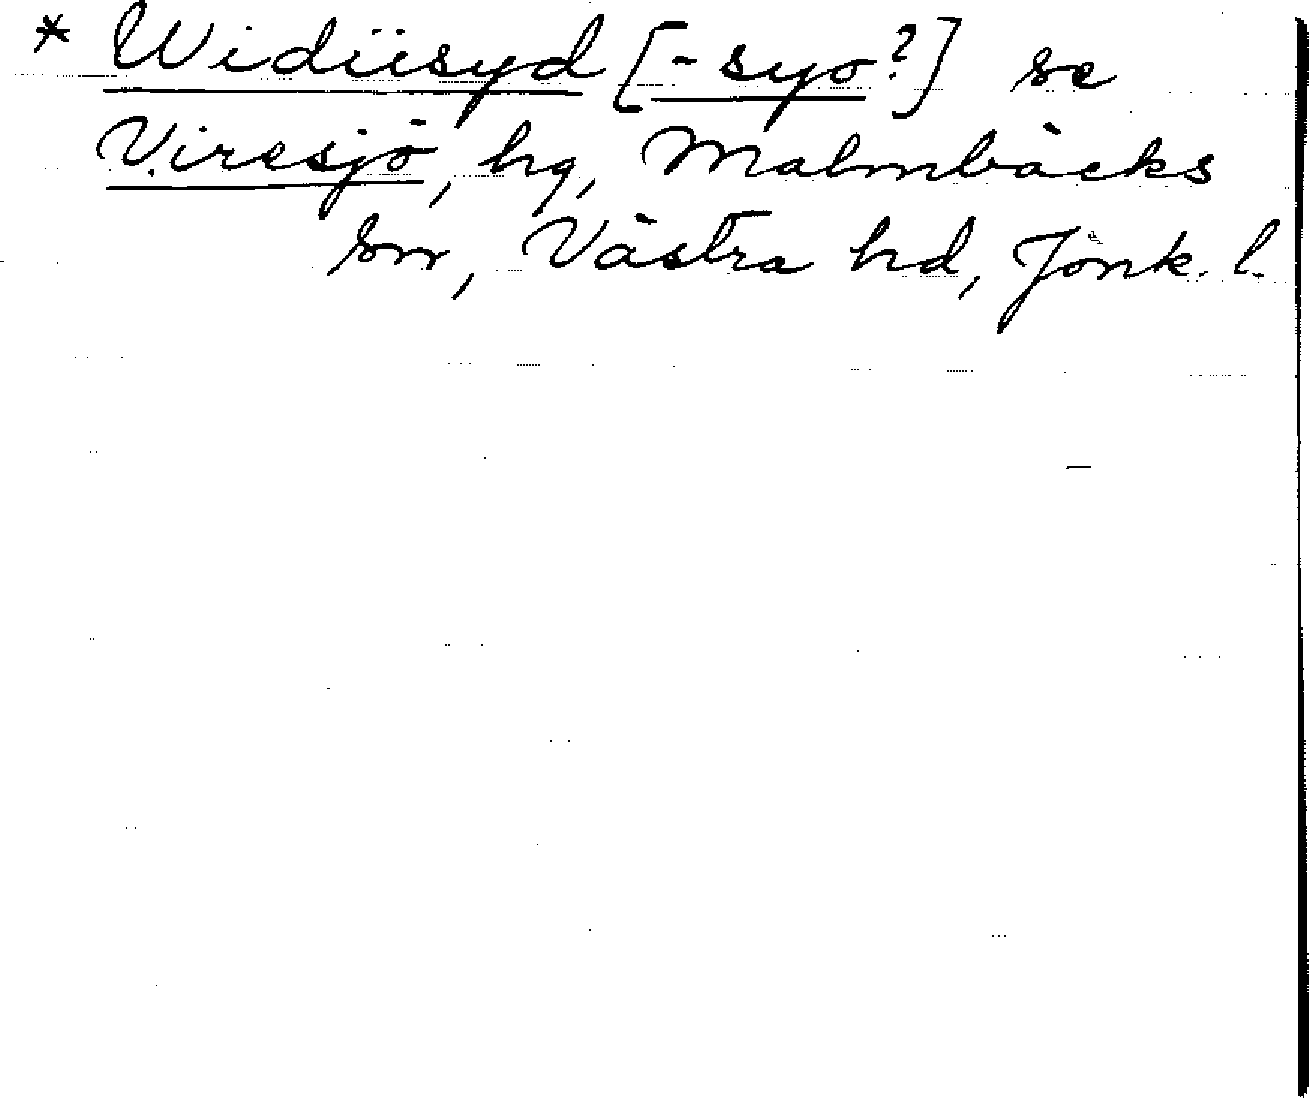 * Widiisyd [-syo?] se
Viresjö, hg, Malmbäcks
sn, Västra hd, Jönk. l.